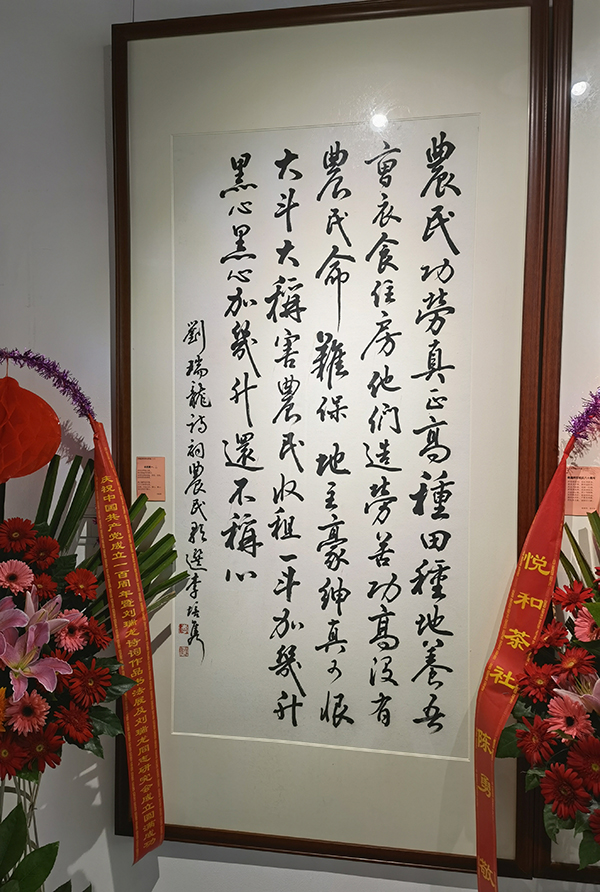 農民功勞真正高種田種地養吾
曹衣食住房他們造勞苦功高沒有
農民命難保地主豪紳真可恨
大斗大稱害農民收租一斗加幾升
黑心黑心加幾升還不稱心
劉瑞龍詩詞農民歌選李培
庆祝中国共产党成立一百周年暨刘瑞龙诗词作品书法展及刘瑞龙同志研究会成立圆满成功
悦和茶社 陈勇敬